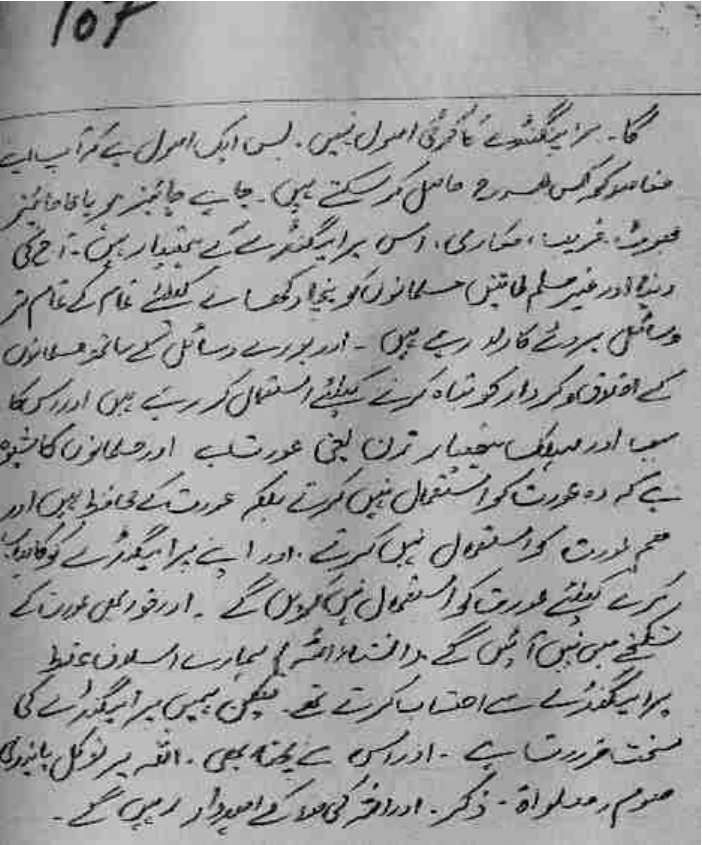 107
گا۔ پراپیگنڈے کا کوئی اصول نہیں۔ بس ایک اصول ہے کہ آپ اپنے
مقاصد کو کس طرح حاصل کر سکتے ہیں۔ چاہے جائیز ہو یا ناجائیز
جھوٹ، فریب، مکاری، اس پراپیگنڈے کے ہتھیار ہیں۔ آج کی
دنیا اور غیر مسلم طاقتیں مسلمانوں کو نیچا دکھانے کیلئے تمام کے تمام تر
وسائل بروئے کار لا رہے ہیں۔ اور پورے وسائل کے ساتھ مسلمانوں
کے اخلاق و کردار کو تباہ کرنے کیلئے استعمال کر رہے ہیں اور اس کا
سب اور مہلک ہتھیار ترین یعنی عورت ہے اور مسلمانوں کا شیوہ
ہے کہ وہ عورت کو استعمال نہیں کرتے بلکہ عورت کے محافظ ہیں اور
ہم عورت کو استعمال نہیں کرتے۔ اور اپنے پراپیگنڈے کو کامیاب
کرنے کیلئے عورت کو استعمال نہیں کریں گے۔ اور خود بھی عورت کے
شکنجے میں نہیں آئیں گے۔ (انشاء اللہ) ہمارے اسلاف غلط
پراپیگنڈے سے اجتناب کرتے تھے۔ لیکن ہمیں پراپیگنڈے کی
سخت ضرورت ہے۔ اور اس سے بچنا بھی۔ اللہ پر توکل پابندی
صوم و صلواۃ۔ ذکر۔ اور اللہ کی مدد کے امیدوار رہیں گے۔